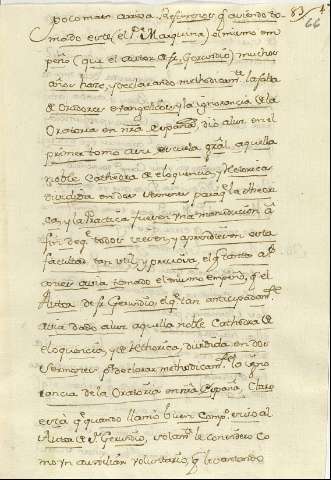 83
66
poco mas arriva, Referemos q.e aviendo to
mado este (el P.e Marquina) el mismo em
peño (que el autor de f.r Gerundio) muchos
años hace, y declarando methodicam.te la falta
de Oradores evangelicos, y la ignorancia de la
Oratoria en nra España, dió a luz en el
primer tomo
noble Cathedra de eloquencia, y Rethorica
dividida en dos sermones para q.e la theori
ca, y la Practica fuesen una manuducion á
fin de q.e todos viesen, y aprendiesen esta
facultad tan util, y preciosa, el q.e
avia tomado el mismo empeño, q.e el
Autor de f.r Gerundio, el q.e tan anticipadam.te
avia dado a luz aquella noble Cathedra de
eloquencia, y de Rethorica, dividida en dos
sermones p.a declarar methodicam.te la igno
rancia de la Oratoria en nra España, Claro
está q.e quando llamó buen Comp.o
Autor de f.r Gerundio, solam.te le consideró co
mo un auxiliar voluntario, q.e levantando